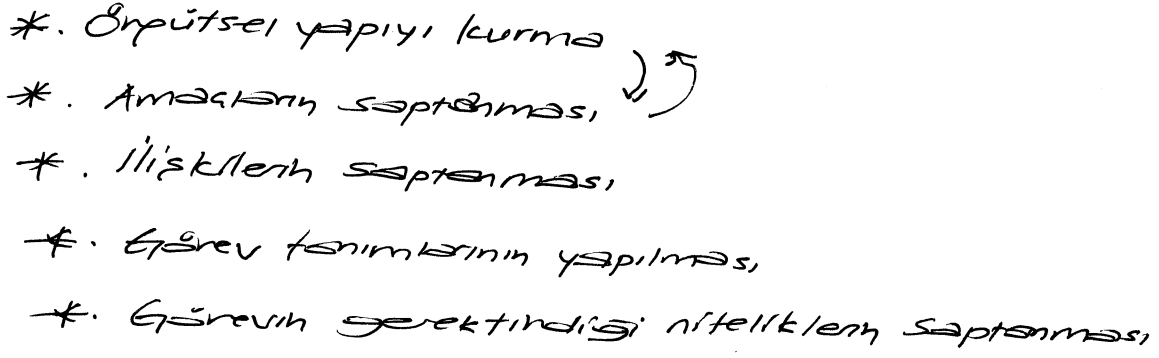 *. Örgütsel yapıyı kurma
*. Amaçların saptanması
*. İlişkilerin saptanması
*. Görev tanımlarının yapılması
*. Görevin gerektirdiği niteliklerin saptanması